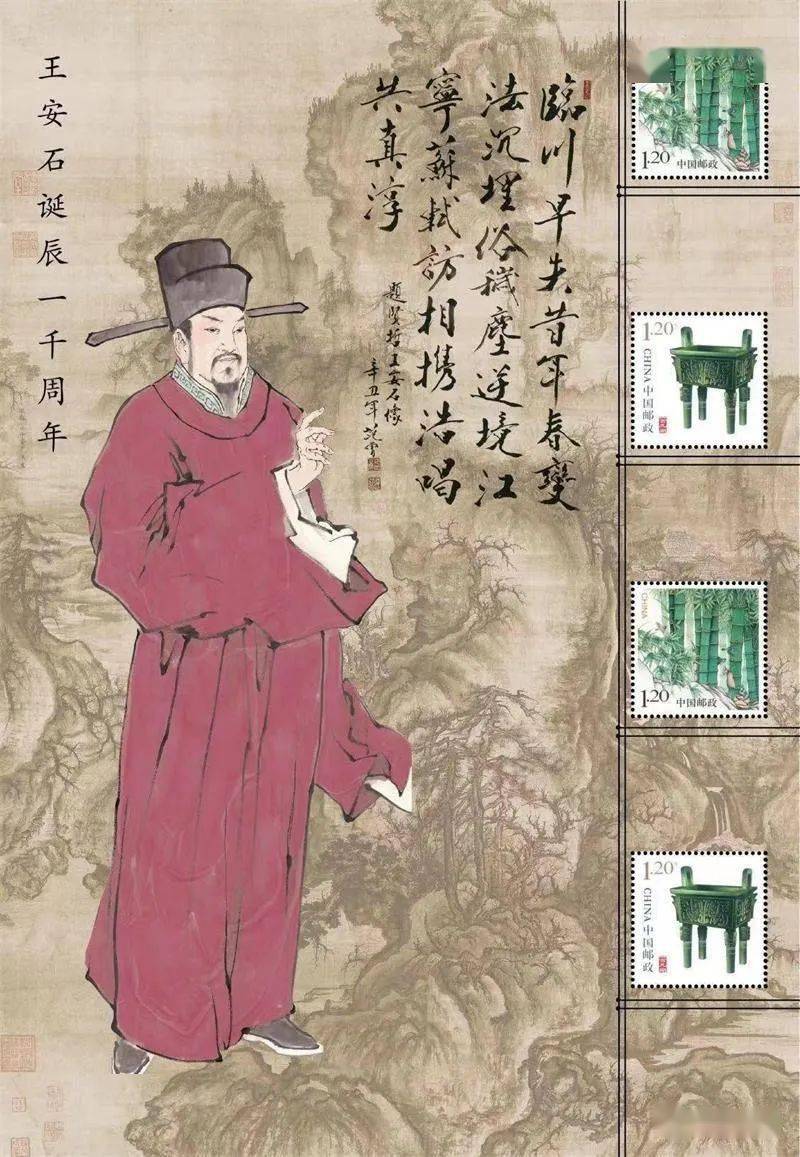 王安石诞辰一千周年
臨川早失昔年春變
法沉埋俗穢塵逆境江
寧蘇軾訪相携浩唱
共真淳
题贤哲王安石像
辛丑年范曾
1.20
中国邮政
1.20
CHINA
中国邮政
CHINA
1.20
中国邮政
1.20
CHINA
中国邮政